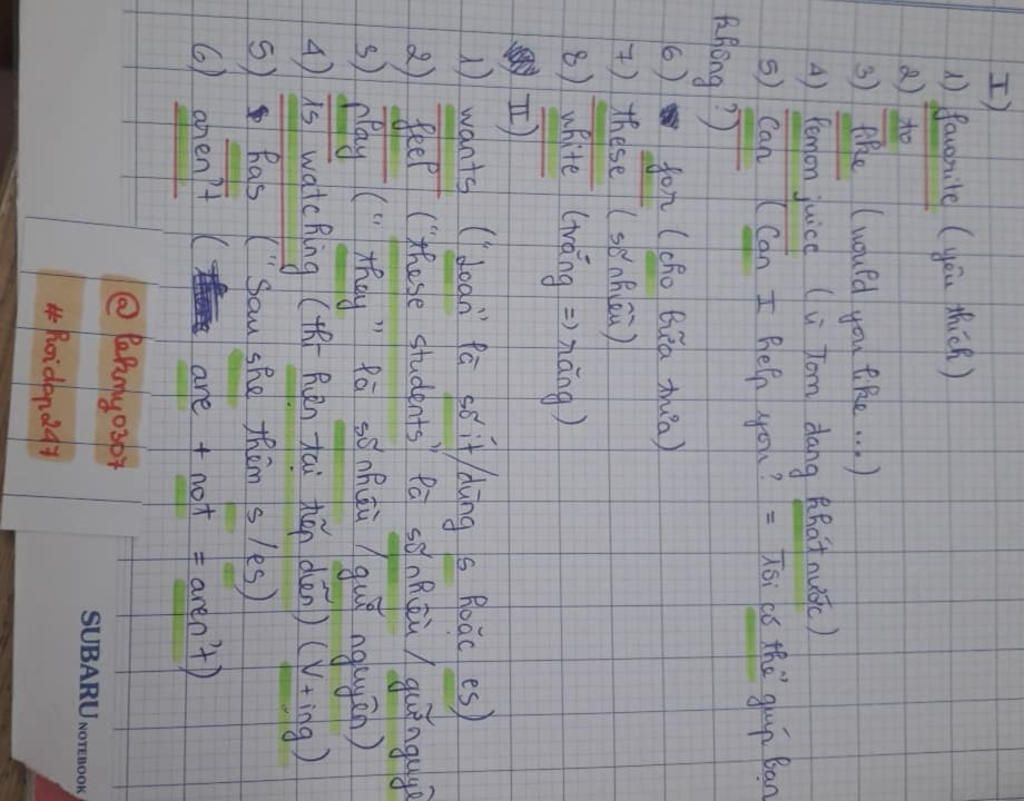 I)
1) favorite (yêu thích)
2) to
3) like (would you like...)
4) lemon juice (vì Tom đang khát nước)
5) Can (Can I help you? = Tôi có thể giúp bạn
không?)
6) for (cho bữa trưa)
7) these (số nhiều)
8) white (trắng => răng)
II)
1) wants ("Loan" là số ít/dùng s hoặc es)
2) feel ("these students" là số nhiều/giữ nguyê
3) play ("they" là số nhiều/giữ nguyên)
4) is watching (thì hiện tại tiếp diễn) (V+ing)
5) has (" Sau she thêm s/es)
6) aren't ( are + not = aren't)
@
#hoidap247
SUBARU NOTEBOOK